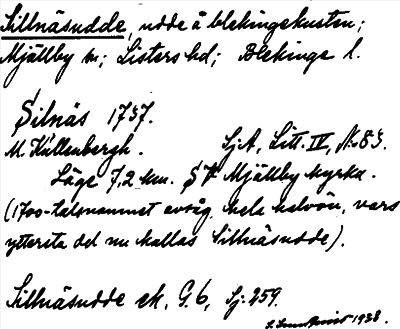 Sillnäsudde, udde å blekingekusten;
Mjällby sn; Listers hd; Blekinge l.
Silnäs 1737.
M. Kullenbergh. SjA, Litt. IV, Nr 83.
Läge 7,2 km. SV Mjällby kyrka.
(1700-talsnamnet avsåg hela halvön, vars
yttersta del nu kallas Sillnäsudde).
Sillnäsudde ek, G. 6, Sj: 259.
1938.